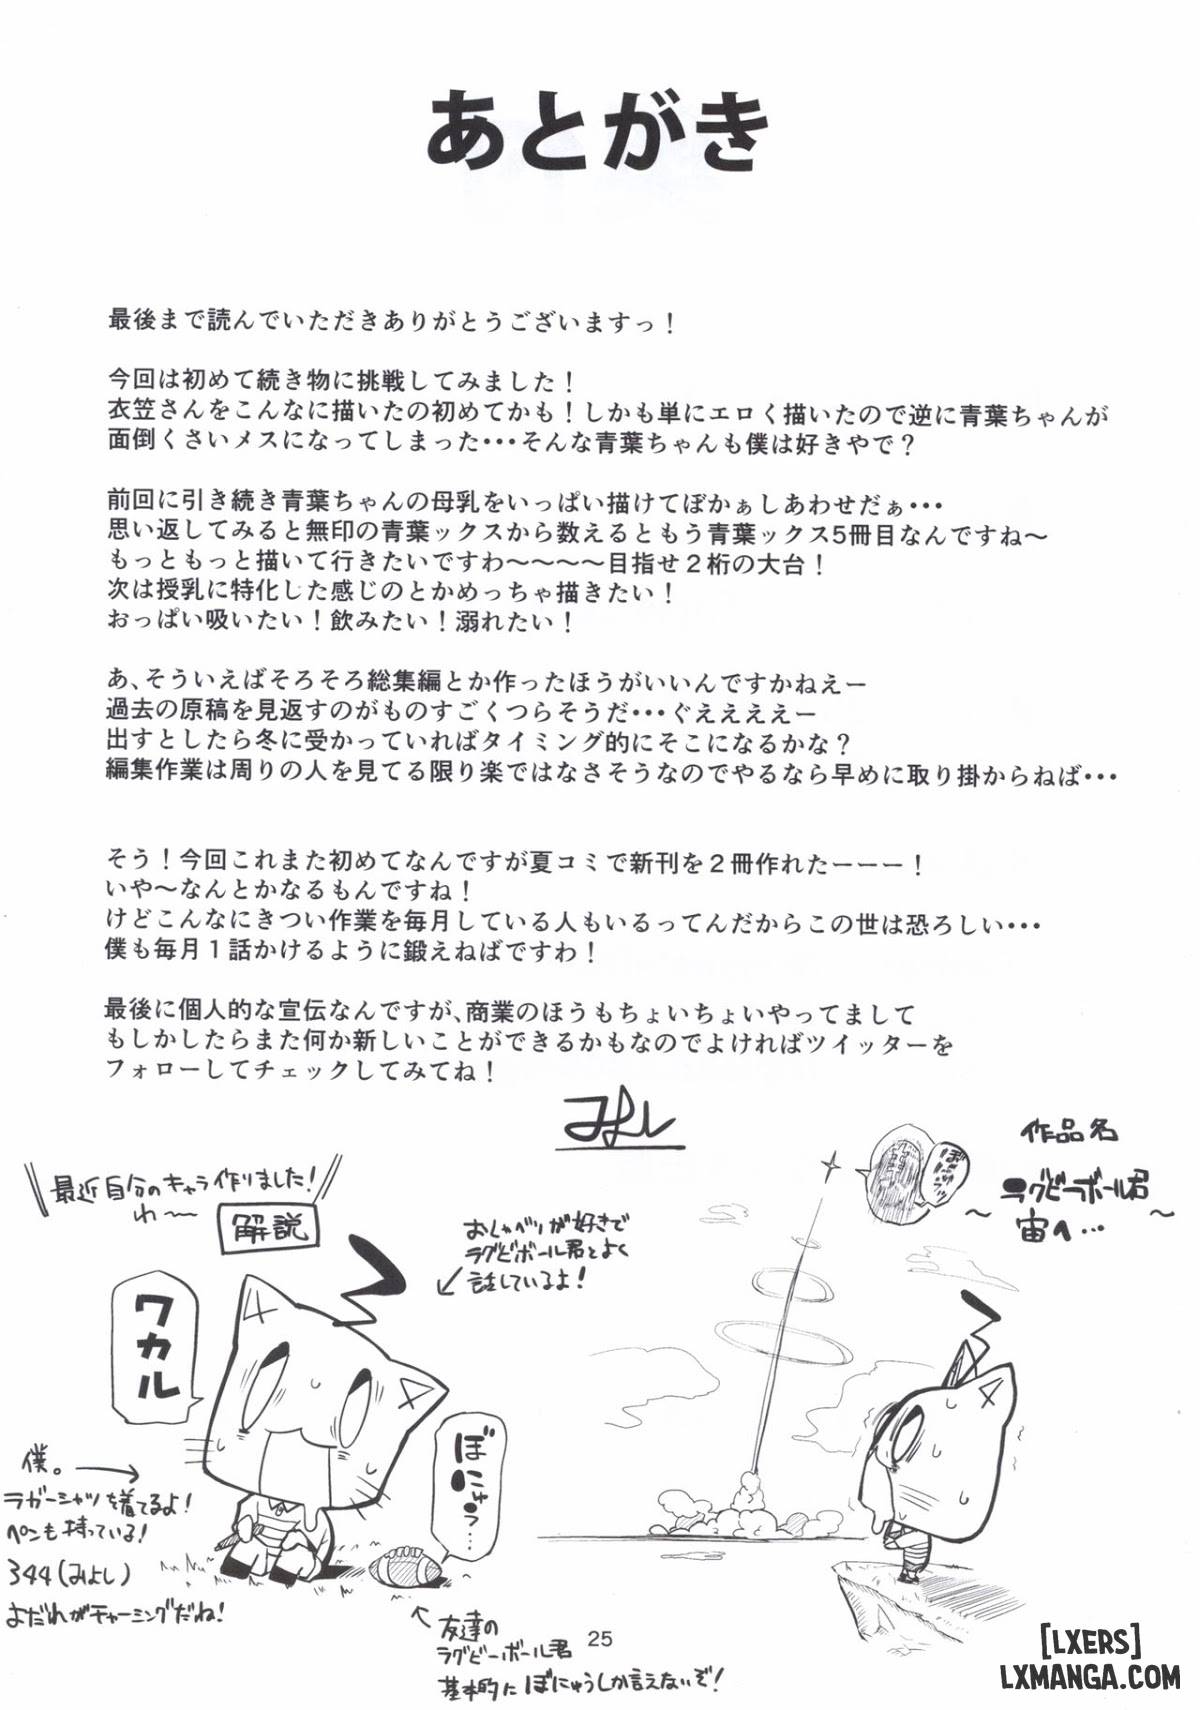 あとがき
最後まで読んでいただきありがとうございますっ！
今回は初めて続き物に挑戦してみました！
衣笠さんをこんなに描いたの初めてかも！しかも単にエロく描いたので逆に青葉ちゃんが
面倒くさいメスになってしまった・・・そんな青葉ちゃんも僕は好きやで？
前回に引き続き青葉ちゃんの母乳をいっぱい描けてぼかぁしあわせだぁ・・・
思い返してみると無印の青葉ックスから数えるともう青葉ックス5冊目なんですね～
もっともっと描いて行きたいですわ～～～～目指せ２桁の大台！
次は授乳に特化した感じのとかめっちゃ描きたい！
おっぱい吸いたい！飲みたい！溺れたい！
あ、そういえばそろそろ総集編とか作ったほうがいいんですかねえー
過去の原稿を見返すのがものすごくつらそうだ・・・ぐええええー
出すとしたら冬に受かっていればタイミング的にそこになるかな？
編集作業は周りの人を見てる限り楽ではなさそうなのでやるなら早めに取り掛からねば・・・
そう！今回これまた初めてなんですが夏コミで新刊を２冊作れたーーー！
いや～なんとかなるもんですね！
けどこんなにきつい作業を毎月している人もいるってんだからこの世は恐ろしい・・・
僕も毎月１話かけるように鍛えねばですわ！
最後に個人的な宣伝なんですが、商業のほうもちょいちょいやってまして
もしかしたらまた何か新しいことができるかもなのでよければツイッターを
フォローしてチェックしてみてね！
みよし
最近自分のキャラ作りました！
わ～
解説
おしゃべりが好きで
ラグビーボール君とよく
話しているよ！
ワカル
ぼにゅう…
僕。
ラガーシャツを着てるよ！
ペンも持っている！
344(みよし)
よだれがチャーミングだね！
友達の
ラグビーボール君
基本的にぼにゅうしか言えないぞ！
作品名
～ラグビーボール君
宙へ…～
25
[LXERS]
LXMANGA.COM